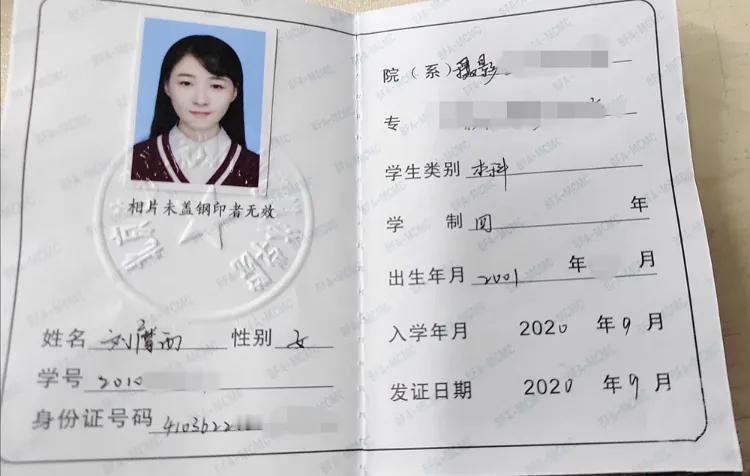 相片未盖钢印者无效
姓名 刘摩西 性别 女
学号 2010
身份证号码 4103622
院（系）摄影
专
学生类别 本科
学 制 四 年
出生年月 2001 年
入学年月 2020 年 9 月
发证日期 2020 年 9 月
BFA-MCMC